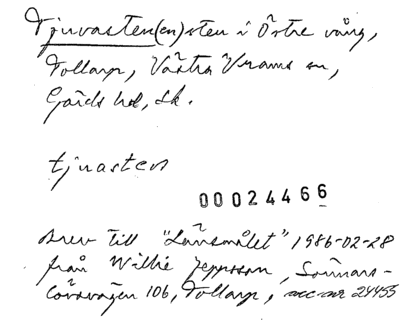 Tjuvasten(en)sten i Östre vång,
Tollarp, Västra Vrams sn,
Gärds hd, Sk.
tjuvasten
00024466
Brev till "Länsmålet" 1986-02-28
från Willie Jeppsson, Sonnars-
lövsvägen 106, Tollarp, acc-nr 24455